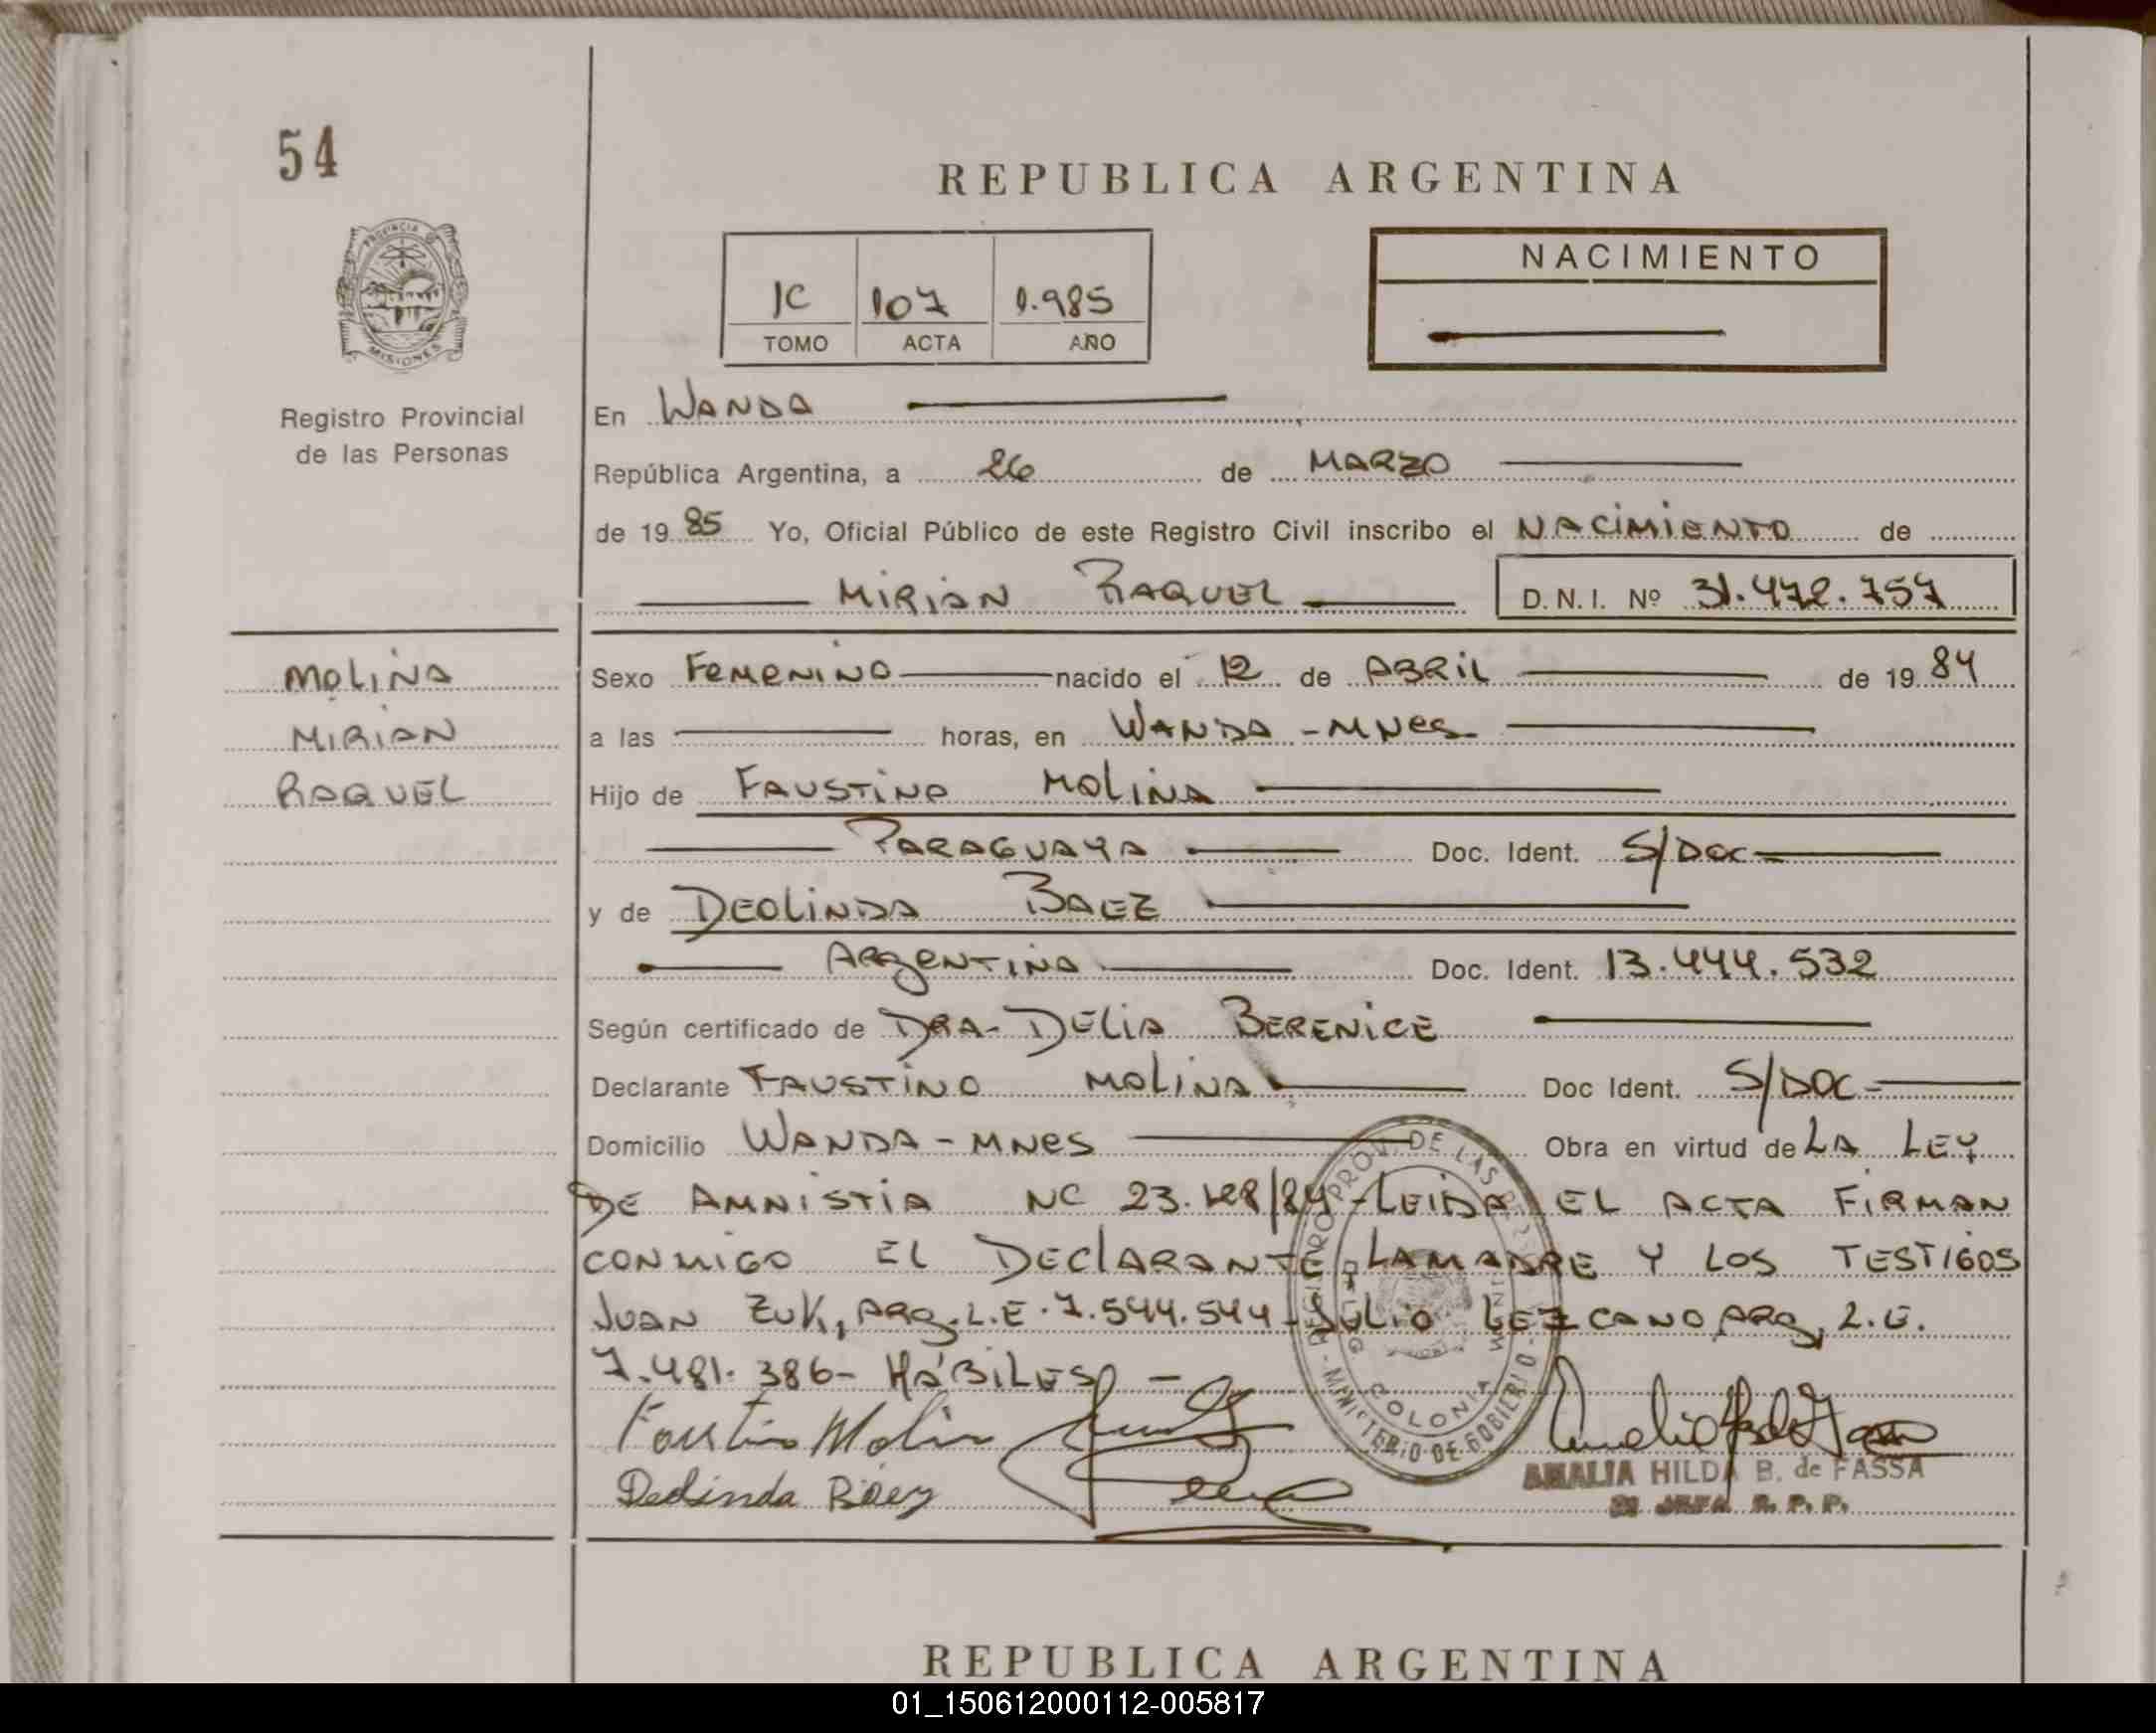 54
REPUBLICA ARGENTINA
PROVINCIA D
MISIONES
NACIMIENTO
1C 107 1.985
TOMO ACTA AÑO
Registro Provincial
de las Personas
En WANDA
República Argentina, a 26 de MARZO
de 19 85 Yo, Oficial Público de este Registro Civil inscribo el NACIMIENTO de
MIRIAN RAQUEL D.N.I. Nº 31.472.757
MOLINA
MIRIAN
RAQUEL
Sexo FEMENINO nacido el 12 de ABRIL de 19 84
a las horas, en WANDA - MNES
Hijo de FAUSTINO MOLINA
PARAGUAYA Doc. Ident. S/DOC
y de DEOLINDA BAEZ
ARGENTINA Doc. Ident. 13.444.532
Según certificado de DRA- DELIA BERENICE
Declarante FAUSTINO MOLINA Doc Ident. S/DOC-
Domicilio WANDA - MNES Obra en virtud de LA LEY
DE AMNISTIA NC 23.128/84 - LEIDA EL ACTA FIRMAN
CONMIGO EL DECLARANTE, LA MADRE Y LOS TESTIGOS
JUAN ZUK, ARG. L.E. 7.544.544 - JULIO LEZCANO ARG, L.E.
7.481.386- HÁBILES -
Faustino Molin
Deolinda Báez
REGISTRO PROV. DE LAS
MINISTERIO DE GOBIERNO
COLONIA WANDA
AMALIA HILDA B. de FASSA
JEFA R. P. P.
REPUBLICA ARGENTINA
01_150612000112-005817